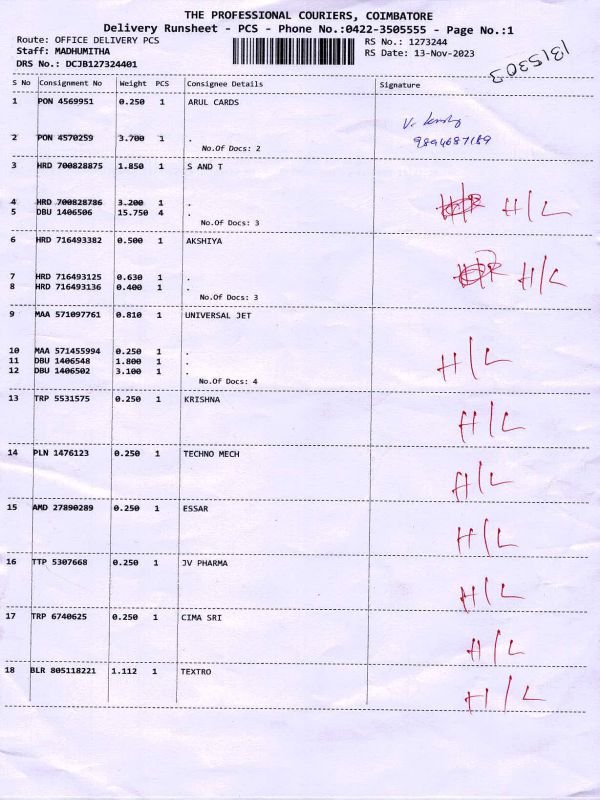 THE PROFESSIONAL COURIERS, COIMBATORE
Delivery Runsheet - PCS - Phone No.:0422-3505555 - Page No.:1
Route: OFFICE DELIVERY PCS
Staff: MADHUMITHA
DRS No.: DCJB127324401
RS No.: 1273244
RS Date: 13-Nov-2023
1315303
S No Consignment No Weight PCS Consignee Details Signature
1 PON 4569951 0.250 1 ARUL CARDS
2 PON 4570259 3.700 1 .
9894687189
No.Of Docs: 2
3 HRD 700828875 1.850 1 S AND T
4 HRD 700828786 3.200 1 .
H/L
5 DBU 1406506 15.750 4 .
No.Of Docs: 3
6 HRD 716493382 0.500 1 AKSHIYA
7 HRD 716493125 0.630 1 . H/L
8 HRD 716493136 0.400 1 .
No.Of Docs: 3
9 MAA 571097761 0.810 1 UNIVERSAL JET
10 MAA 571455994 0.250 1 .
11 DBU 1406548 1.800 1 . H/L
12 DBU 1406502 3.100 1 .
No.Of Docs: 4
13 TRP 5531575 0.250 1 KRISHNA
H/L
14 PLN 1476123 0.250 1 TECHNO MECH
H/L
15 AMD 27890289 0.250 1 ESSAR
H/L
16 TTP 5307668 0.250 1 JV PHARMA
H/L
17 TRP 6740625 0.250 1 CIMA SRI
H/L
18 BLR 805118221 1.112 1 TEXTRO
H/L